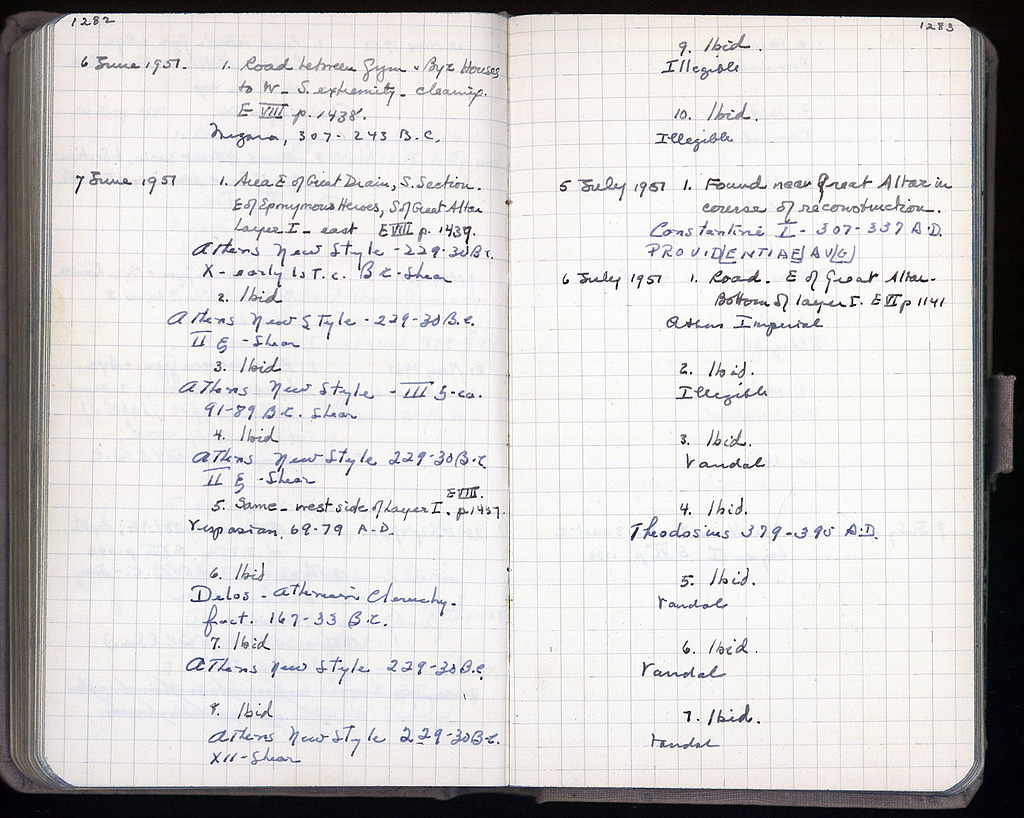 1282
6 June 1951. 1. Road between Gym & Byz Houses
to W - S. extremity - cleaning.
E VIII p. 1438.
Megara, 307-243 B.C.
7 June 1951 1. Area E of Great Drain, S. Section.
E of Eponymous Heroes, S of Great Altar
Layer I - east E VIII p. 1439.
Athens New Style - 229-30 B.C.
X - early 1st. c. B.C. - Shear
2. Ibid
Athens New Style - 229-30 B.C.
II - Shear
3. Ibid
Athens New Style - III 5 - ca.
91-89 B.C. Shear
4. Ibid
Athens New Style 229-30 B.C.
II - Shear
E VIII.
5. Same - west side of Layer I. p. 1437
Vespasian. 69-79 A.D.
6. Ibid
Delos - Athenian Cleruchy.
fract. 167-33 B.C.
7. Ibid
Athens New Style 229-30 B.C.
8. Ibid
Athens New Style 229-30 B.C.
XII - Shear
1283
9. Ibid.
Illegible
10. Ibid.
Illegible
5 July 1951 1. Found near Great Altar in
course of reconstruction.
Constantine I - 307-337 A.D.
PROVID[ENTIAE] AV[G]
6 July 1951 1. Road. E of Great Altar.
Bottom of layer I. E VII p 1141
Athens Imperial
2. Ibid.
Illegible
3. Ibid.
Vandal
4. Ibid.
Theodosius 379-395 A.D.
5. Ibid.
Vandal
6. Ibid.
Vandal
7. Ibid.
Vandal